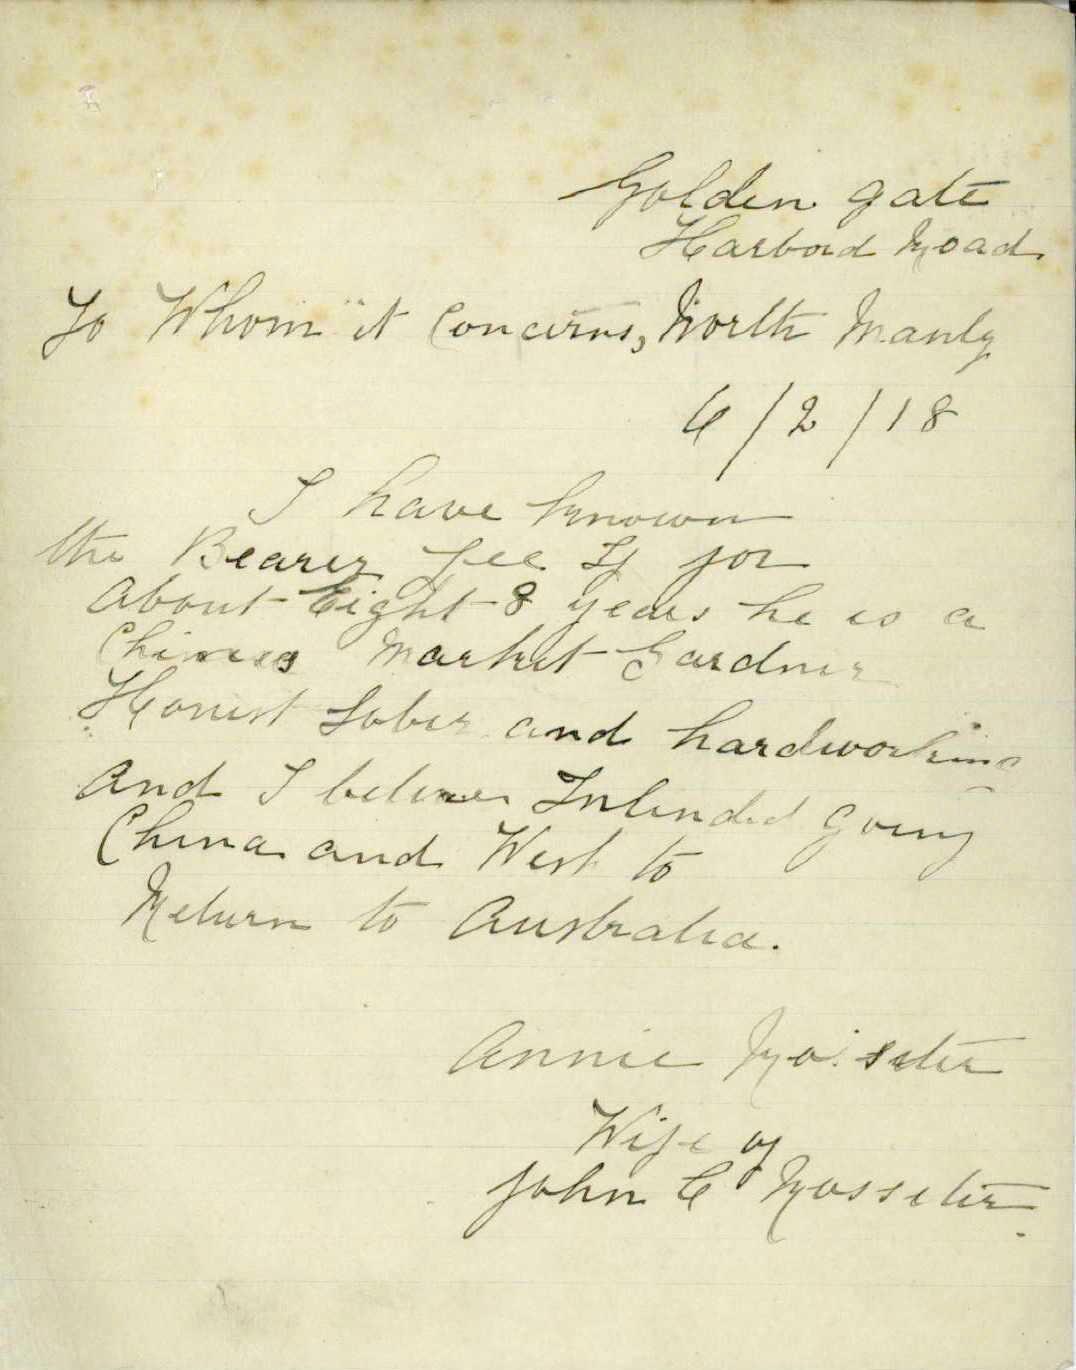 Golden gate
Harbord Road
To Whom it Concerns, North Manly
6/2/18
I have known
the Bearer Lee
for
About Eight 8 years he is a
Chinese Market Gardner
Honest Sober and hardworking
And I believe Intended going
China and West to
Return to Australia.
Annie Rosseter
Wife of
John C Rosseter